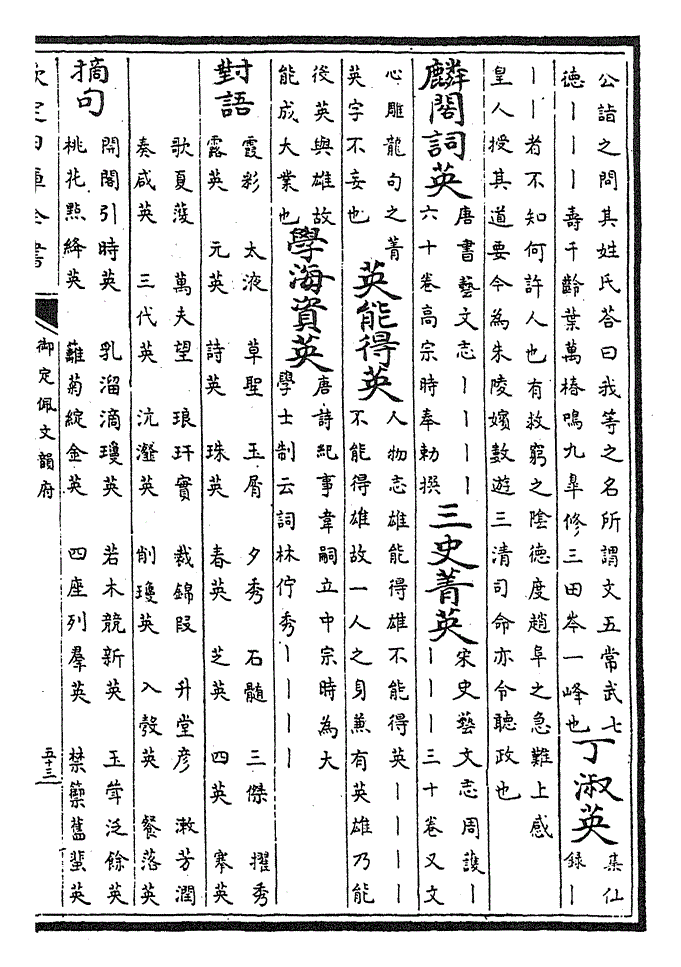 公詣之問其姓氏答曰我等之名所謂文五常武七
德丨丨丨壽千齡葉萬椿鳴九臯修三田岑一峰也
丁淑英
集仙
錄丨
丨丨者不知何許人也有救窮之陰德度趙阜之急難上感
皇人授其道要令為朱陵嬪數遊三清司命亦令聽政也
麟閣詞英
唐書藝文志丨丨丨丨
六十卷高宗時奉勅撰
三史菁英
宋史藝文志周護丨
丨丨丨三十卷又文
心雕龍句之菁
英字不妄也
英能得英
人物志雄能得雄不能得英丨丨丨丨
不能得雄故一人之身兼有英雄乃能
後英與雄故
能成大業也
學海資英
唐詩紀事韋嗣立中宗時為大
學士制云詞林佇秀丨丨丨丨
對語
霞彩 太液 草聖 玉屑 夕秀 石髓 三傑 擢秀
露英 元英 詩英 珠英 春英 芝英 四英 搴英
歌夏濩 萬夫望 琅玕實 裁錦段 升堂彥 漱芳潤
奏咸英 三代英 沆瀣英 削瓊英 入彀英 餐落英
摘句
開閣引時英 乳溜滴瓊英 若木競新英 玉茸泛餘英
桃花點絳英 蘺菊綻金英 四座列羣英 禁籞舊蜚英
欽定四庫全書
御定佩文韻府
五十三